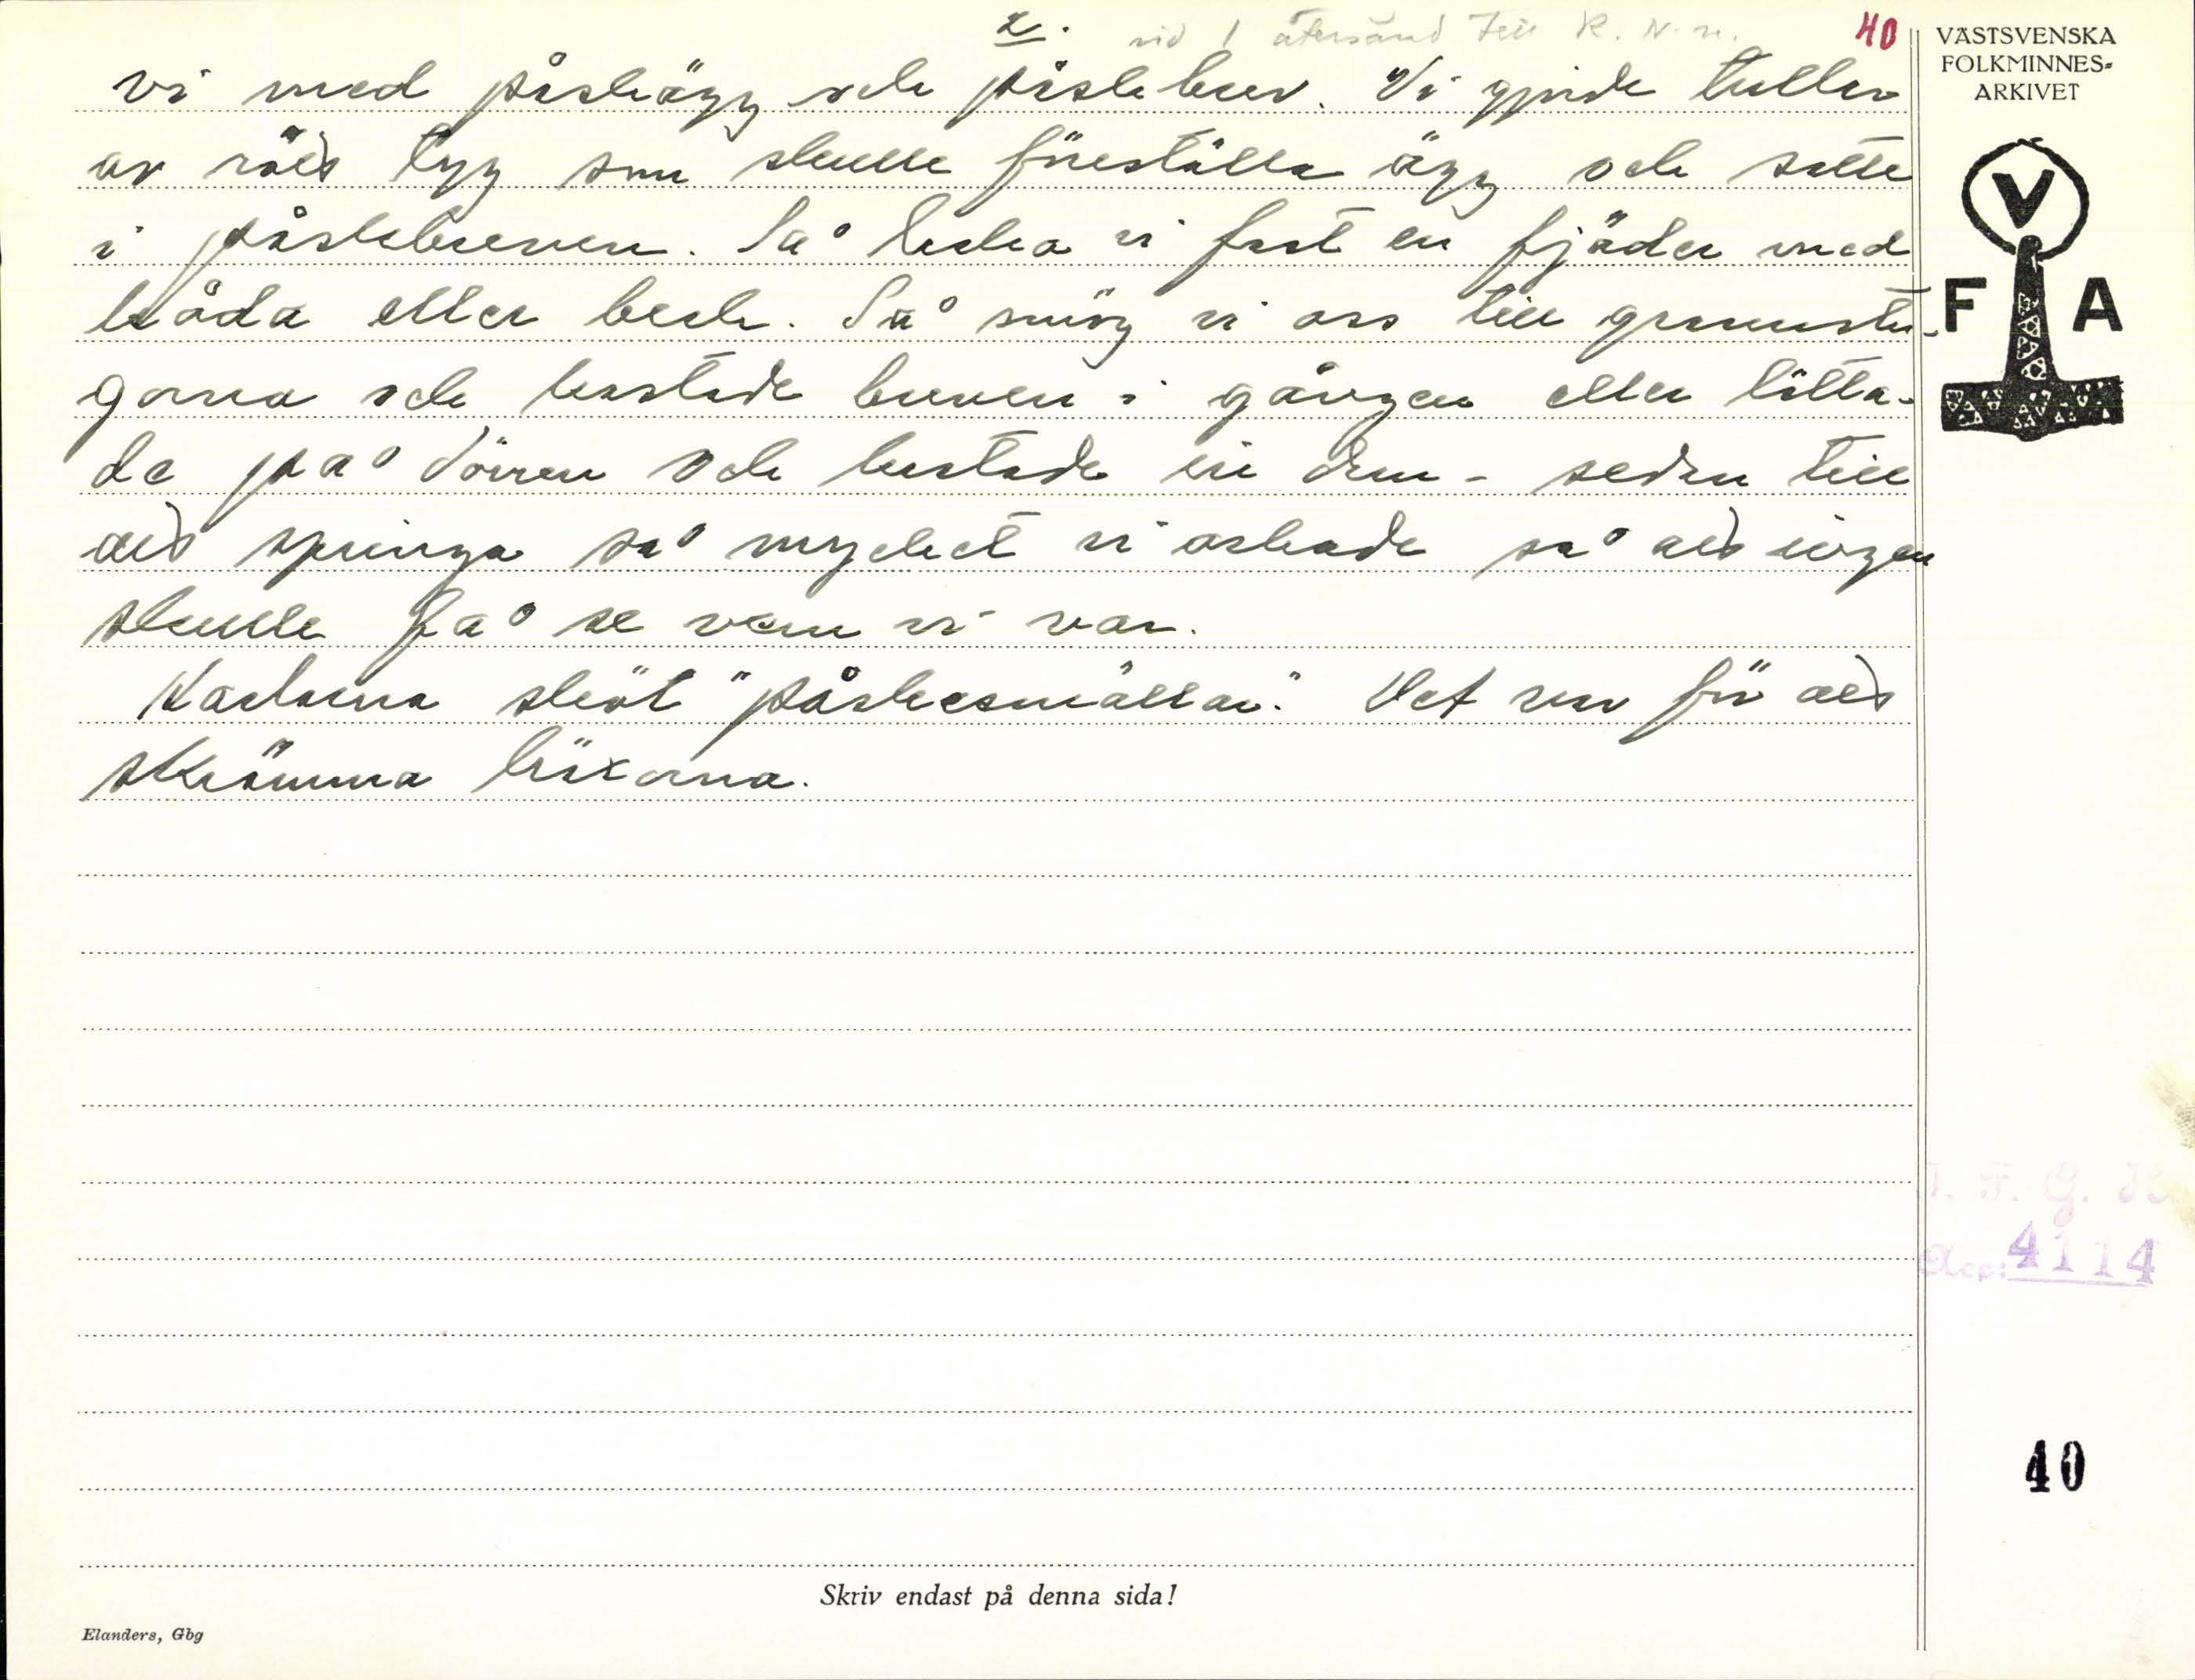 2.
sid 1 återsänd till R. N-n.
40
vi med påskägg och påskbrev. Vi gjorde tullar
av rött tyg som skulle föreställa ägg och satte
i påskbreven. Så braka vi fast en fjäder med
kåda eller beck. Så smög vi oss till grannstu-
gorna och kastade breven i gången eller lätta-
de på dörren och kastade in dem - sedan till
att springa så mycket vi orkade så att ingen
skulle få se vem vi var.
Karlarna sköt "påskasmällar". Det var för att
skrämma häxorna.
VÄSTSVENSKA
FOLKMINNES-
ARKIVET
V
F A
I. F. G. H.
Acc: 4114
40
Skriv endast på denna sida!
Elanders, Gbg